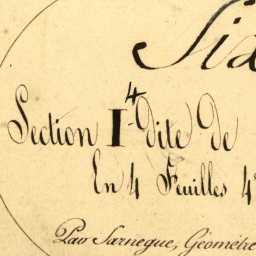 Six
Section I⁴ dite de
En 4 Feuilles 4
Par Sarnegue, Géomètre